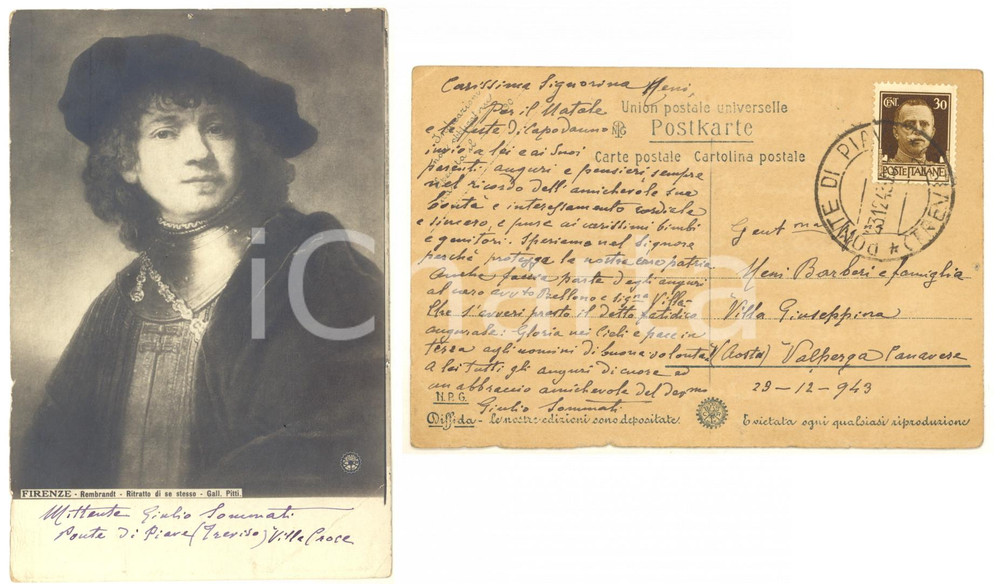 FIRENZE - Rembrandt - Ritratto di se stesso - Gall. Pitti.
Mittente Giulio Sommati
Ponte di Piave (Treviso) Villa Croce
iCharta
Carissima Signorina Meni,
Per il Natale
e le feste di Capodanno
invio a lei e ai Suoi
parenti, auguri e pensieri sempre
nel ricordo dell'amichevole sua
bontà e interessamento cordiale
e sincero, e pure ai carissimi bimbi
e genitori. Speriamo nel Signore
perchè protegga la nostra cara patria
Anche faccia parte degli auguri
al caro avv.to Bellono e sig.na Villa-
che s'avveri presto il detto fatidico
augurale: Gloria nei Cieli e pace in
terra agli uomini di buona volontà
A lei tutti gli auguri di cuore ed
un abbraccio amichevole del dev.mo
Giulio Sommati
N.P.G.
Diffida - Le nostre edizioni sono depositate.
Union postale universelle
Postkarte
Carte postale Cartolina postale
CENT. 30
POSTE ITALIANE
PONTE DI PIAVE
31.12.43
Gent.ma
Meni Barberi e famiglia
Villa Giuseppina
(Aosta) Valperga Canavese
29-12-943
È vietata ogni qualsiasi riproduzione